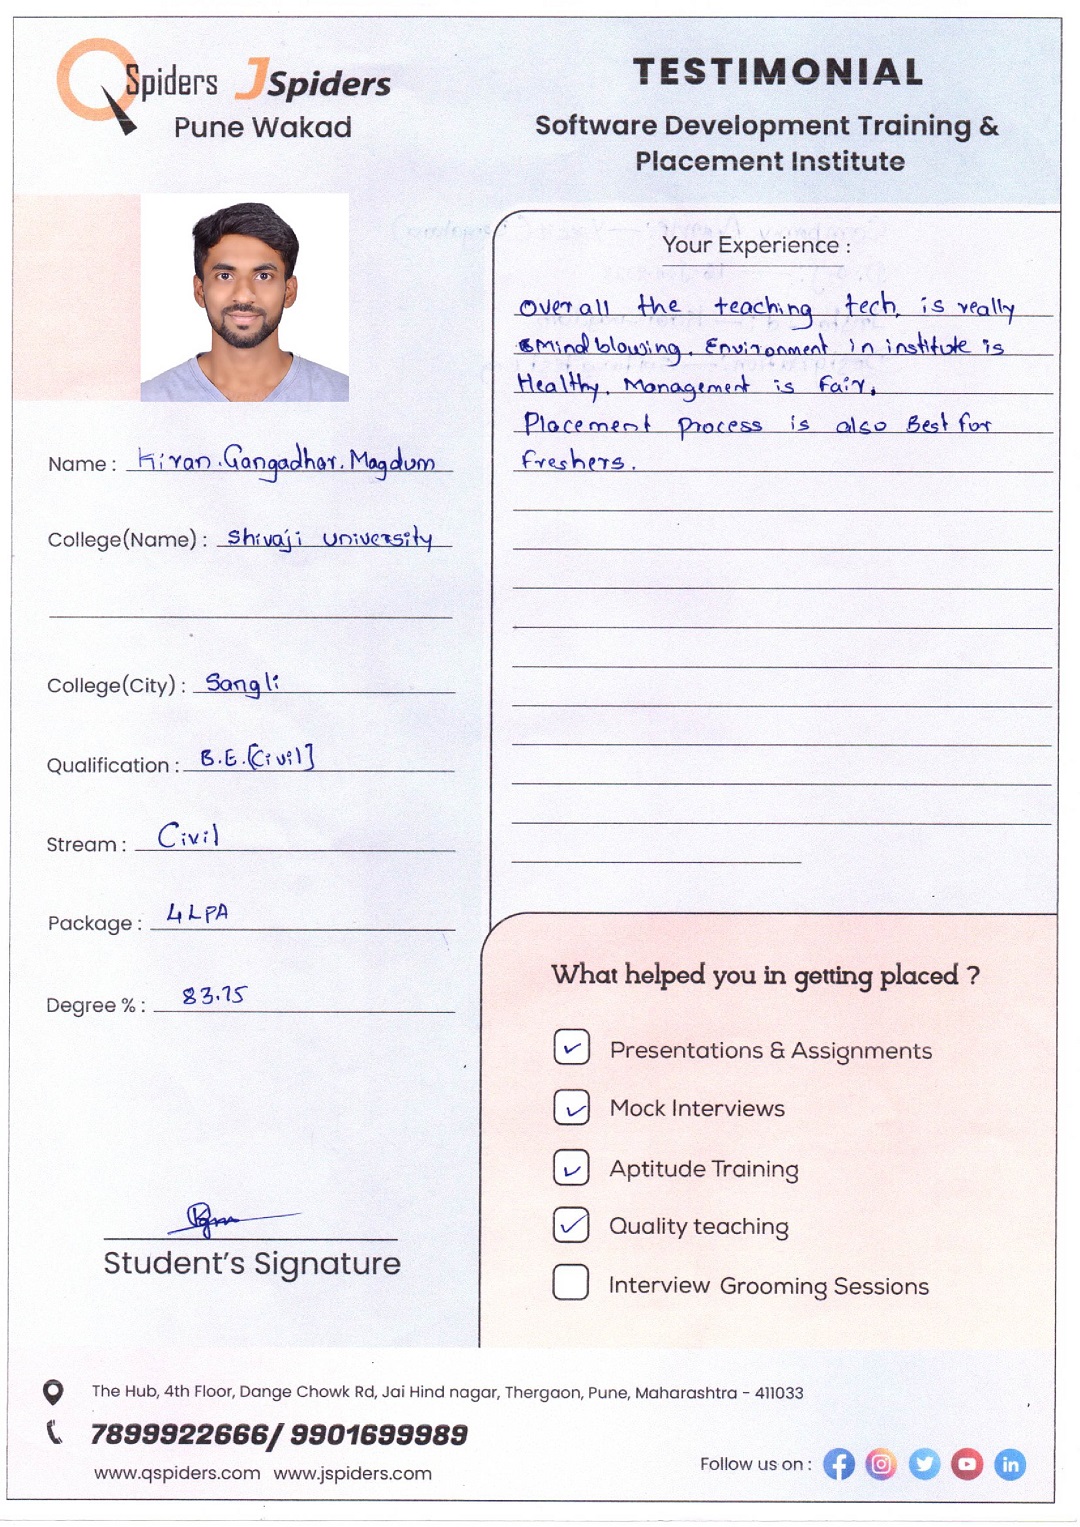 QSpiders JSpiders
Pune Wakad
TESTIMONIAL
Software Development Training &
Placement Institute
Name : Kiran.Gangadhar.Magdum
College(Name) : Shivaji University
College(City) : Sangli
Qualification : B.E.[Civil]
Stream : Civil
Package : 4 LPA
Degree % : 83.75
Student's Signature
Your Experience :
Overall the teaching tech. is really
Mind blowing. Environment in institute is
Healthy. Management is Fair.
Placement process is also Best for
freshers.
What helped you in getting placed ?
Presentations & Assignments
Mock Interviews
Aptitude Training
Quality teaching
Interview Grooming Sessions
The Hub, 4th Floor, Dange Chowk Rd, Jai Hind nagar, Thergaon, Pune, Maharashtra - 411033
7899922666/ 9901699989
www.qspiders.com www.jspiders.com
Follow us on :